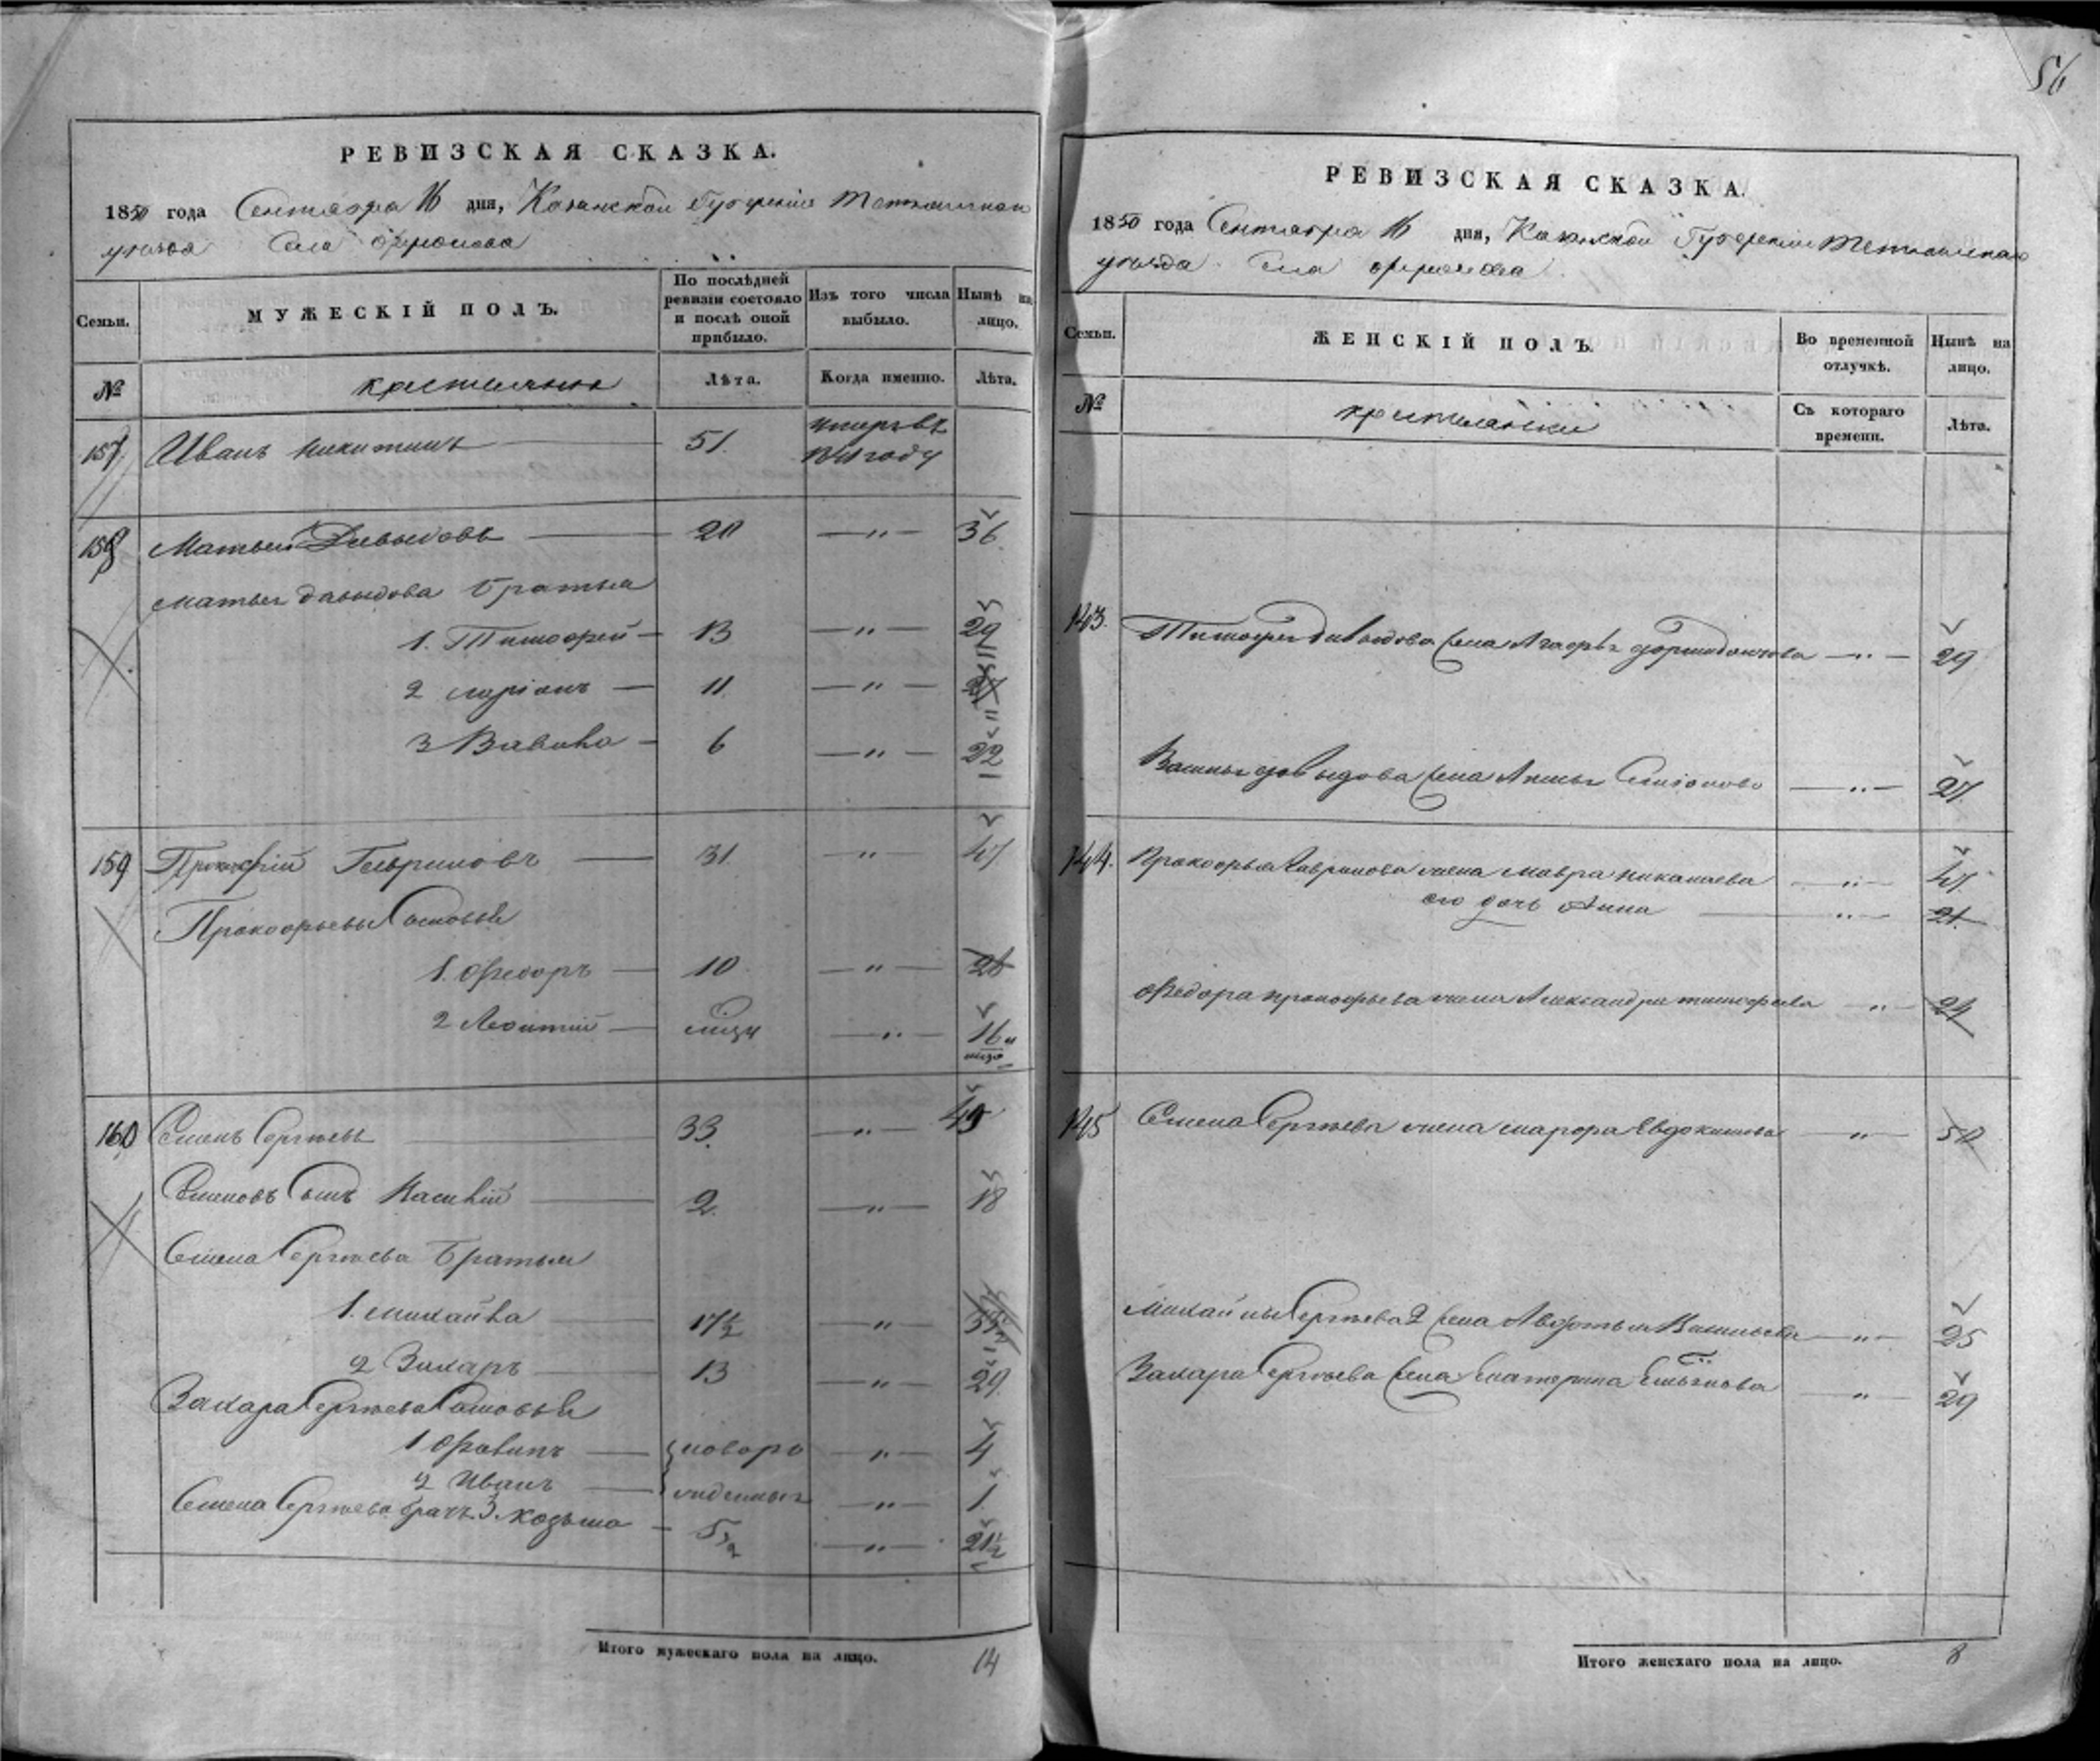 56
РЕВИЗСКАЯ СКАЗКА.
1850 года Сентября 16 дня, Казанской Губернии
уезда Села
Семьи.
МУЖЕСКІЙ ПОЛЪ.
По послѣдней ревизіи состояло и послѣ оной прибыло.
Изъ того числа выбыло.
Нынѣ на лицо.
№
крестьяне
Лѣта.
Когда именно.
Лѣта.
157. Иванъ Никитинъ 51. году
158 Матвей Давыдовъ 20 — „ — 36
Матвея Давыдова братья
1. Тимофей — 13 — „ — 29
2 Ларіонъ — 11. — „ — 27
3 Вавила — 6 — „ — 22
159 Прокофій Гавриловъ 31. — „ — 47
Прокофьевы Сыновья
1. Федоръ — 10 — „ — 26
2 Леонтій — — „ — 16
160 Семенъ Сергѣевъ 33. — „ — 49
Семеновъ Сынъ 2. — „ — 18
Семена Сергѣева Братья
1. Михайла 17½ — „ — 33½
2 Захаръ 13 — „ — 29
Захара Сергѣева Сыновья
1 — „ — 4
2 Иванъ — „ — 1.
Семена Сергѣева братъ 3. Козьма — 5½ — „ — 21½
Итого мужескаго пола на лицо. 14
РЕВИЗСКАЯ СКАЗКА.
1850 года Сентября 16 дня, Казанской Губернии
уезда Села
Семьи.
ЖЕНСКІЙ ПОЛЪ.
Во временной отлучкѣ.
Нынѣ на лицо.
№
крестьянки
Съ котораго времени.
Лѣта.
143. Тимофея Давыдова жена — „ — 29
Вавилы Давыдова жена — „ — 27.
144. Прокофья Гаврилова жена Мавра — „ — 47
его дочь Анна — „ — 21.
Федора Прокофьева жена Александра Тимофеева — „ — 24
145 Семена Сергѣева жена Евдокимова — „ — 50
Михайлы Сергѣева 2 жена Авдотья Васильева — „ — 25
Захара Сергѣева жена Катерина — „ — 29
Итого женскаго пола на лицо. 8